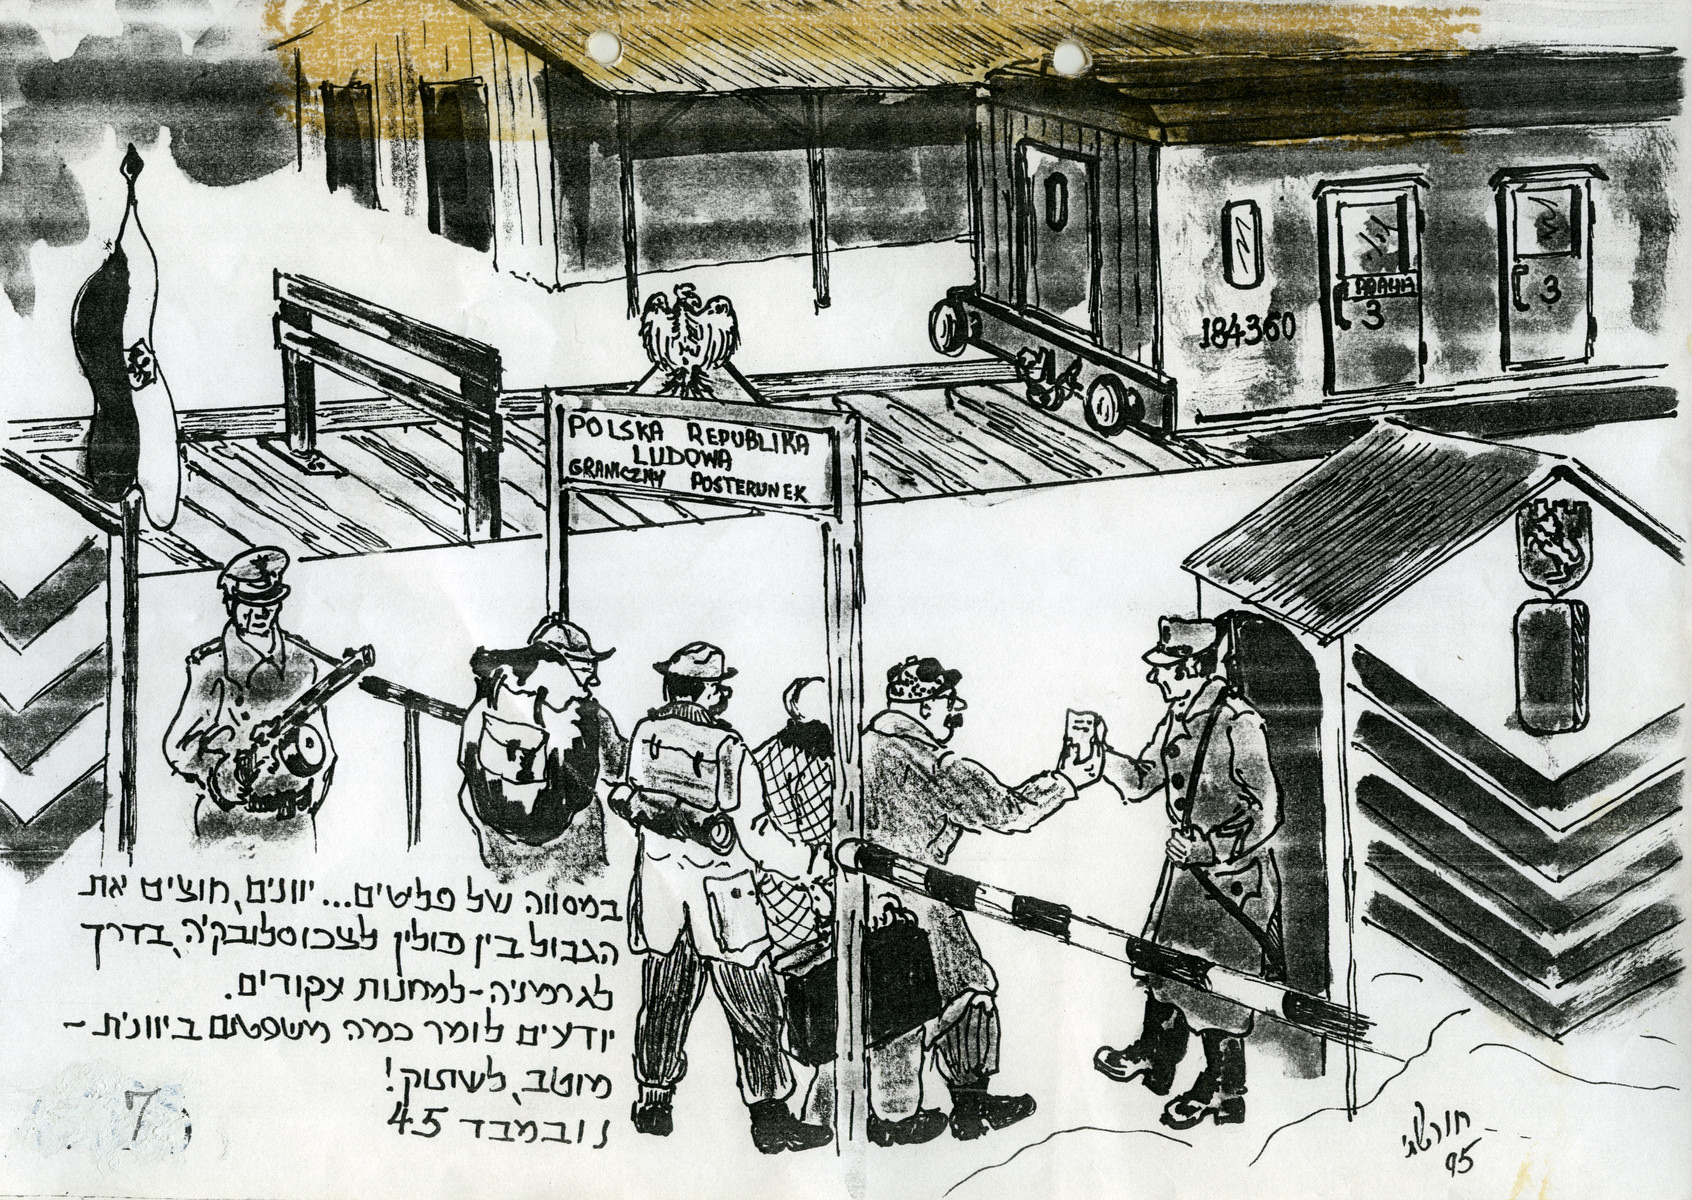 POLSKA REPUBLIKA
LUDOWA
GRANICZNY POSTERUNEK
184360
PRAHA
3
3
במסווה של פליטים... יוונים, חוצים את
הגבול בין פולין לצכוסלובק'ה, בדרך
לגרמניה-למחנות עקורים.
יודעים לומר כמה משפטים ביוונית -
מוטב, לשתוק!
נובמבד 45
7
95